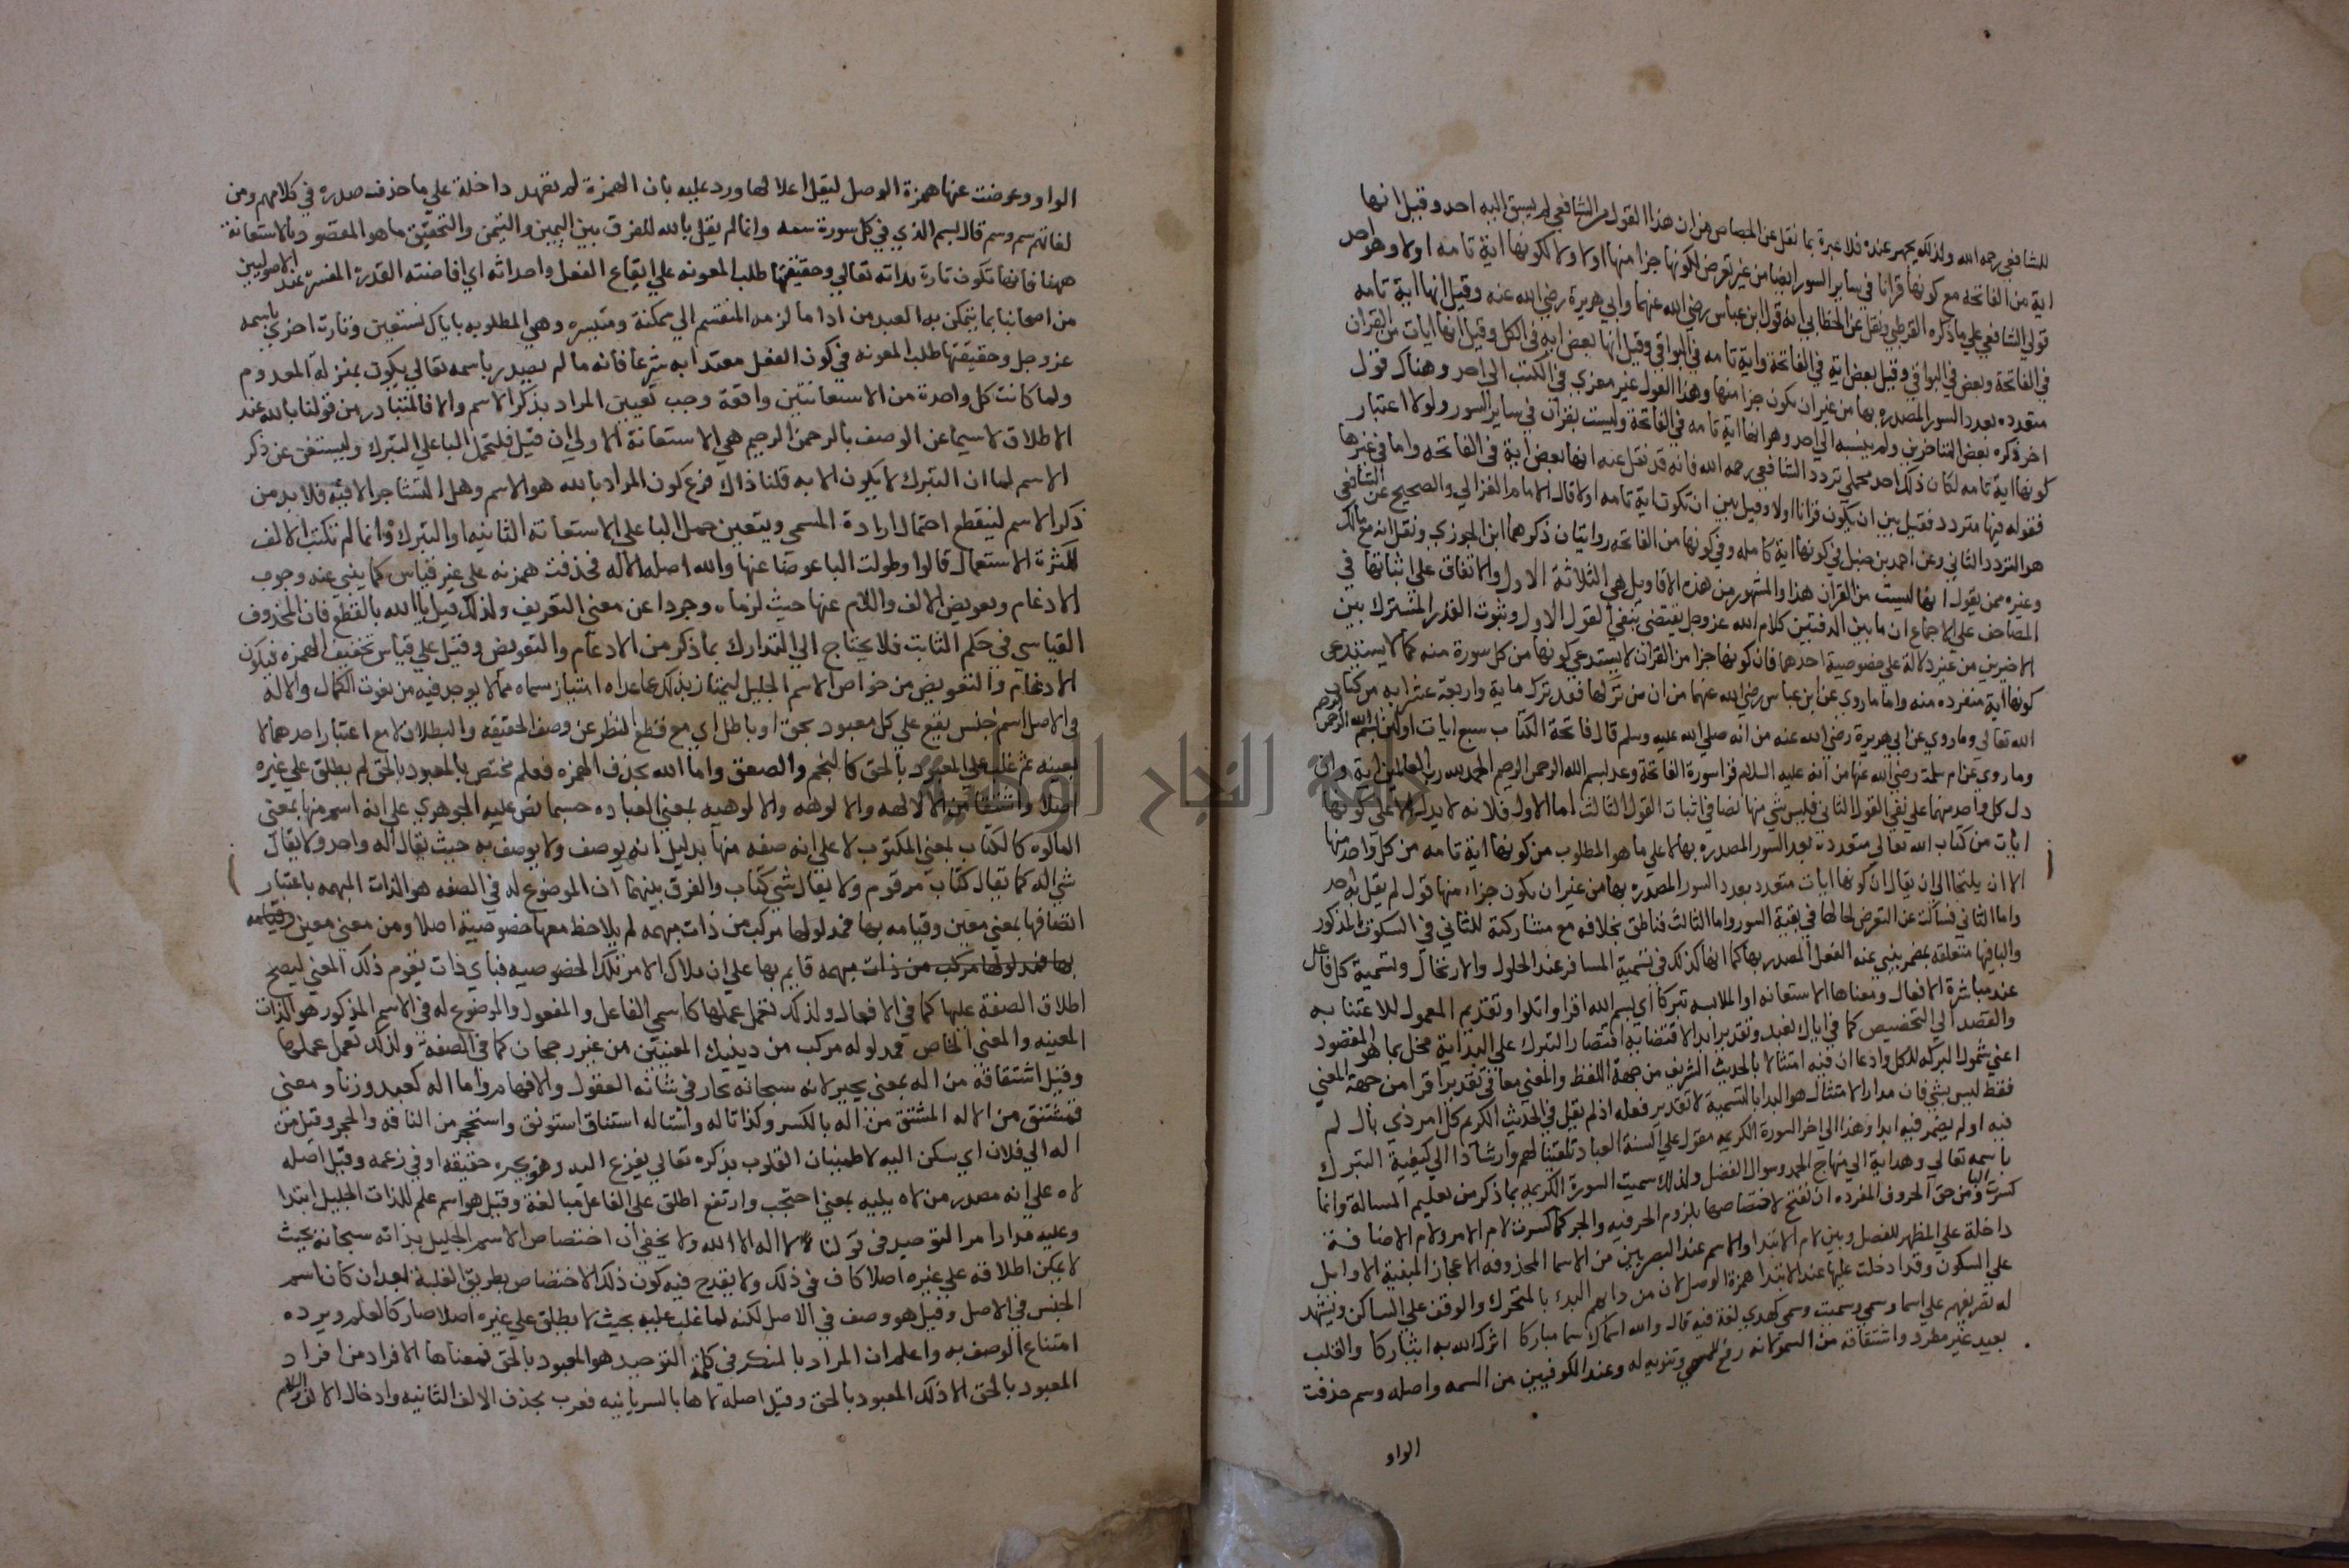 للشافعي رحمه الله ولذلك يجهر عنده فلا عبرة بما نقل عن الجصاص من ان هذا القول من الشافعي لم يسبق اليه احد وقيل انها
اية من الفاتحة مع كونها قرانا في ساير السور ايضا من غير تعرض لكونها جزا منها اولا ولا لكونها اية تامه اولا وهو احد
قولي الشافعي علي ما ذكره القرطبي ونقل عن الخطابي انه قول ابن عباس رضي الله عنهما وابي هريرة رضي الله عنه وقيل انها اية تامه
في الفاتحة وبعض في البواقي وقيل بعض اية في الفاتحة واية تامه في البواقي وقيل انها بعض ايه في الكل وقيل انها ايات من القران
متعدده بعدد السور المصدره بها من غير ان يكون جزا منها وهذا القول غير معزي في الكتب الي احد وهناك قول
اخر ذكره بعض المتاخرين ولم ينسبه الي احد وهو انها اية تامه في الفاتحة وليست بقران في ساير السور ولولا اعتبار
كونها اية تامه لكان ذلك احد محملي تردد الشافعي رحمه الله فانه قد نقل عنه انها بعض اية في الفاتحه واما في غيرها
فقوله فيها متردد فقيل بين ان يكون قرانا اولا وقيل بين ان تكون اية تامه اولا قال الامام الغزالي والصحيح عن الشافعي
هو التردد الثاني وعن احمد بن حنبل في كونها اية كامله وفي كونها من الفاتحه روايتان ذكرهما ابن الجوزي ونقل انه مع مالك
وغيره ممن يقول انها ليست من القران هذا والمشهور من هذه الاقاويل هي الثلاثة الاول والاتفاق علي اثباتها في
المصاحف علي الاجماع ان ما بين الدفتين كلام الله عز وجل يقتضي بنفي القول الاول وثبوت القدر المشترك بين
الاخيرين من غير دلالة علي خصوصية احدهما فان كونها جزا من القران لا يستدعي كونها من كل سورة منه كما لا يستدعي
كونها اية منفرده منه واما ما روي عن ابن عباس رضي الله عنهما من ان من تركها فقد ترك ماية واربعة عشر ايه من كتاب
الله تعالي وما روي عن ابي هريرة رضي الله عنه من انه صلي الله عليه وسلم قال فاتحة الكتاب سبع ايات اولهن بسم الله الرحمن الرحيم
وما روي عن ام سلمة رضي الله عنها من انه عليه السلام قرا سورة الفاتحة وعد بسم الله الرحمن الرحيم الحمد لله رب العالمين اية وان
دل كل واحد منهما علي نفي القول الثاني فليس شي منها نصا في اثبات القول الثالث اما الاول فلانه لا يدل الا علي كونها
ايات من كتاب الله تعالي متعددة بعدد السور المصدره بها لا علي ما هو المطلوب من كونها اية تامه من كل واحد منها
الا ان يلتجا الي ان يقال ان كونها ايات متعدد بعدد السور المصدره بها من غير ان يكون جزاء منها قول لم يقل به احد
واما الثاني فساكت عن التعرض لحالها في بقية السور واما الثالث فناطق بخلافه مع مشاركته للثاني في السكوت المذكور
والبا فيها متعلقه بمضمر ينبي عنه الفعل المصدر بها كما انها كذلك في تسمية المسافر عند الحلول والارتحال وتسمية كل فاعل
عند مباشرة الافعال ومعناها الاستعانه او الملابسه تبركا اي بسم الله اقرا او اتلوا وتقديم المعمول للاعتنا به
والقصد الي التخصيص كما في اياك نعبد وتقدير ابدا لاقتضايه اقتصار التبرك علي البداية مخل بما هو المقصود
اعني شمول البركه للكل وادعا ان فيه امتثالا بالحديث الشريف من جهة اللفظ والمعني معا في تقدير اقرا من جهة المعني
فقط ليس بشي فان مدار الامتثال هو البدا بالتسمية لا تقدير فعله اذ لم يقل في الحديث الكريم كل امر ذي بال لم
فيه او لم يضمر فيه ابدا وهذا الي اخر السورة الكريمه مقول علي السنة العباد تلقينا لهم وارشادا الي كيفية التبرك
باسمه تعالي وهداية الي منهاج الحمد وسوال الفضل ولذلك سميت السورة الكريمه بما ذكر من تعليم المسالة وانما
كسرت البا ومن حق الحروف المفرده ان تفتح لاختصاصها بلزوم الحرفيه والجر كما كسرت لام الامر ولام الاضافة
داخلة علي المظهر للفصل وبين لام الابتدا والاسم عند البصريين من الاسما المحذوفه الاعجاز المبنية الاوايل
علي السكون وقد ادخلت عليها عند الابتدا همزة الوصل لان من دابهم البدء بالمتحرك والوقف علي الساكن ويشهد
له تصريفهم علي اسما وسمي وسميت وسمي كهدي لغة فيه قال والله اسماك سما مباركا اثرك الله به ايثاركا والقلب
بعيد غير مطرد واشتقاقه من السمو لانه رفع للمسمي وتنويه له وعند الكوفيين من السمه واصله وسم حذفت
الواو
الواو وعوضت عنها همزة الوصل ليقل اعلالها ورد عليه بان الهمزة لم تعهد داخلة علي ما حذف صدره في كلامهم ومن
لغاتهم سم وسم قال بسم الذي في كل سورة سمه وانما لم يقل بالله للفرق بين اليمين والتيمن والتحقيق ما هو المقصود بالاستعانة
ههنا فانها تكون تارة بذاته تعالي وحقيقتها طلب المعونه علي ايقاع الفعل واحداثه اي افاضته القدرة المفسره عند الاصوليين
من اصحابنا بما يتمكن به العبد من ادا ما لزمه المنقسم الي ممكنة وميسره وهي المطلوبه باياك نستعين وتارت اخري باسمه
عز وجل وحقيقتها طلب المعونه في كون الفعل معتدا به شرعا فانه ما لم يصدر باسمه تعالي يكون بمنزلة المعدوم
ولما كانت كل واحدة من الاستعانتين واقعة وجب تعيين المراد بذكر الاسم والا فالمتبادر من قولنا بالله عند
الاطلاق لا سيما عن الوصف بالرحمن الرحيم هي الاستعانة الاولي ان قيل فليحمل البا علي التبرك وليستغن عن ذكر
الاسم لما ان التبرك لا يكون الا به قلنا ذاك فرع كون المراد بالله هو الاسم وهل التشاجر الا فيه فلا بد من
ذكر الاسم لينقطع احتمال ارادة المسمي ويتعين حمل البا علي الاستعانة الثانيه او التبرك وانما لم تكتب الالف
لكثرة الاستعمال قالوا وطولت البا عوضا عنها والله اصله الاله فحذفت همزته علي غير قياس كما ينبي عنه وجوب
الادغام وتعويض الالف واللام عنها حيث لزماه وجردا عن معني التعريف ولذلك قيل يا الله بالقطع فان المحذوف
القياسي في حكم الثابت فلا يحتاج الي التدارك بما ذكر من الادغام والتعويض وقيل علي قياس تخفيف الهمزه فيكون
الادغام والتعويض من خواص الاسم الجليل ليمتاز بذلك عما عداه امتياز مسماه عما لا يوجد فيه من نعوت الكمال والاله
في الاصل اسم جنس يقع علي كل معبود بحق او باطل اي مع قطع النظر عن وصف الحقيقه والبطلان لا مع اعتبار احدهما لا
بعينه ثم غلب علي المعبود بالحق كالنجم والصعق واما الله بحذف الهمزه فعلم مختص بالمعبود بالحق لم يطلق علي غيره
اصلا واشتقاقه من الالاهه والالوهه والالوهيه بمعني العباده حسبما نص عليه الجوهري علي انه اسم منها بمعني
المالوه كالكتاب بمعني المكتوب لا علي انه صفه منها بدليل انه يوصف ولا يوصف به حيث يقال اله واحد ولا يقال
شي اله كما يقال كتاب مرقوم ولا يقال شي كتاب والفرق بينهما ان الموضوع له في الصفه هو الذات المبهمه باعتبار
اتصافها بمعني معين وقيامه بها فمدلولها مركب من ذات مبهمه لم يلاحظ معها خصوصية اصلا ومن معني معين وقيامه
بها فمدلولها مركب من ذات مبهمه قايم بها علي ان ملاك الامر تلك الخصوصيه فباي ذات يقوم ذلك المعني ليصح
اطلاق الصفة عليها كما في الافعال ولذلك تعمل عملها كاسمي الفاعل والمفعول والموضوع له في الاسم المذكور هو الذات
المعينه والمعني الخاص فمدلوله مركب من ذينيك المعنيين من غير رجحان كما في الصفة ولذلك تعمل عملها
وقيل اشتقاقه من اله بمعني تحير لانه سبحانه يحار في شانه العقول والافهام واما اله كعبد وزنا ومعني
فمشتق من الاله المشتق من اله بالكسر وكذا تاله واستاله اشتقاق استونق واستحجر من الناقه والحجر وقيل من
اله الي فلان اي سكن اليه لاطمينان القلوب بذكره تعالي يفزع اليه وهو يجيره حقيقه او في زعمه وقيل اصله
لاه علي انه مصدر من لاه يليه بمعني احتجب وارتفع اطلق علي الفاعل مبالغة وقيل هو اسم علم للذات الجليل ابتدا
وعليه مدار امر التوحيد في قولنا لا اله الا الله ولا يخفي ان اختصاص الاسم الجليل بذاته سبحانه بحيث
لا يمكن اطلاقه علي غيره اصلا كاف في ذلك ولا يقدح فيه كون ذلك الاختصاص بطريق الغلبة بعد ان كان اسم
الجنس في الاصل وقيل هو وصف في الاصل لكنه لما غلب عليه بحيث لا يطلق علي غيره اصلا صار كالعلم ويرده
امتناع الوصف به واعلم ان المراد بالمنكر في كلمة التوحيد هو المعبود بالحق فمعناها لا فرد من افراد
المعبود بالحق الا ذلك المعبود بالحق وقيل اصله لاها بالسريانيه فعرب بحذف الالف الثانيه وادخال الالف واللام
جامعة النجاح الوطنية